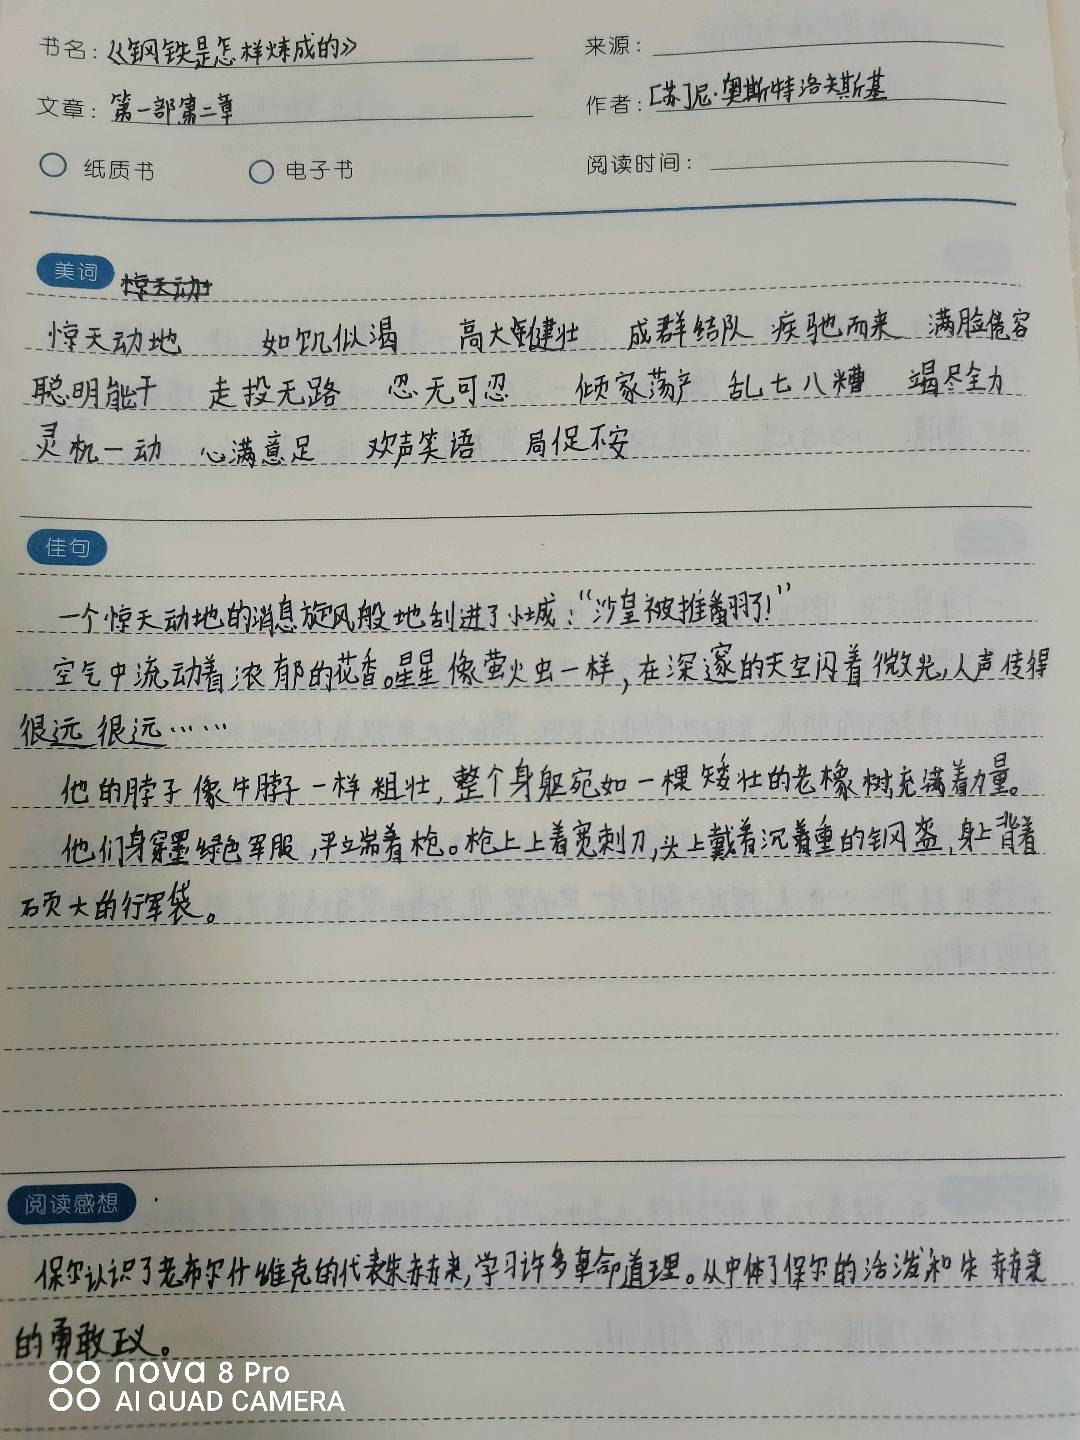 书名：《钢铁是怎样炼成的》 来源：
文章：第一部第二章 作者：[苏]尼·奥斯特洛夫斯基
纸质书 电子书 阅读时间：
美词 惊天动
惊天动地 如饥似渴 高大健壮 成群结队 疾驰而来 满脸倦容
聪明能干 走投无路 忍无可忍 倾家荡产 乱七八糟 竭尽全力
灵机一动 心满意足 欢声笑语 局促不安
佳句
一个惊天动地的消息旋风般地刮进了小城：“沙皇被推翻了！”
空气中流动着浓郁的花香。星星像萤火虫一样，在深邃的天空闪着微光，人声传得
很远很远……
他的脖子像牛脖子一样粗壮，整个身躯宛如一棵矮壮的老橡树，充满着力量。
他们身穿墨绿色军服，平端着枪。枪上上着宽刺刀，头上戴着沉重的钢盔，身上背着
硕大的行军袋。
阅读感想
保尔认识了老布尔什维克的代表朱赫来，学习许多革命道理。从中体了保尔的活泼和朱赫来
的勇敢正义。
nova 8 Pro
AI QUAD CAMERA